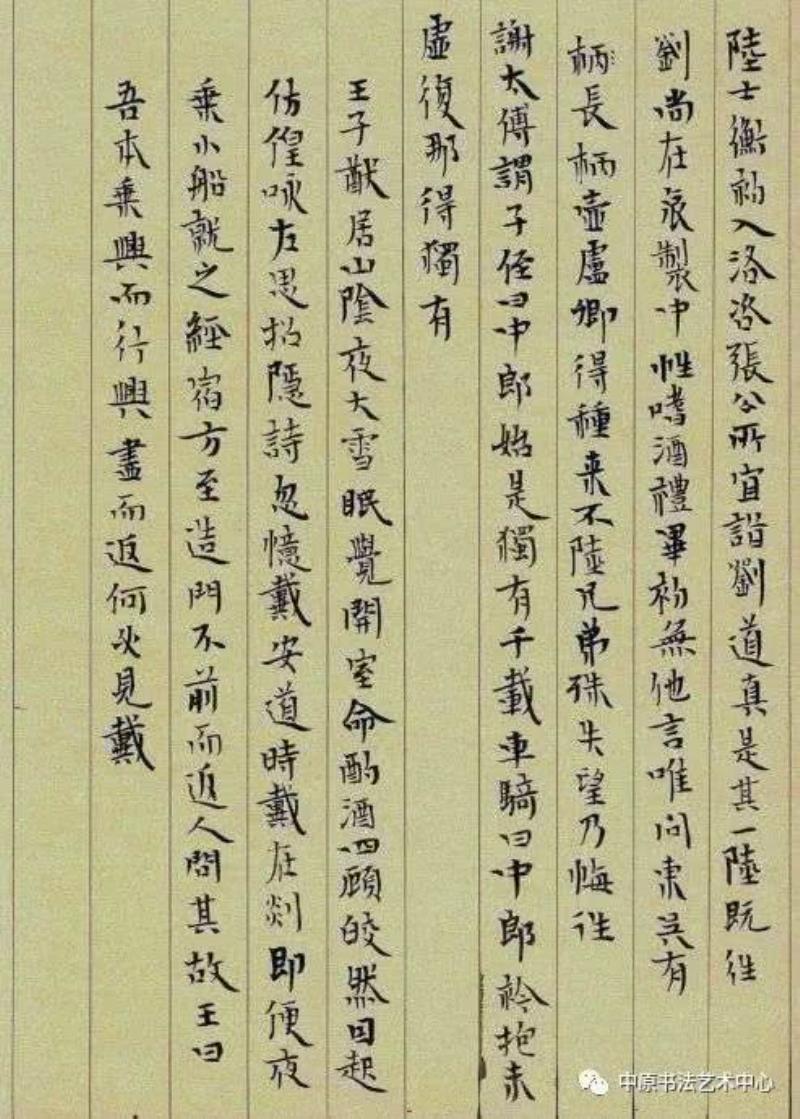 陸士衡初入洛咨張公所宜詣劉道真是其一陸既往
劉尚在哀製中性嗜酒禮畢初無他言唯問東吴有
柄長柄壺盧卿得種来不陸兄弟殊失望乃悔往
謝太傅謂子侄曰中郎始是獨有千載車騎曰中郎衿抱未
虚復那得獨有
王子猷居山陰夜大雪眠覺開室命酌酒四顧皎然因起
仿偟咏左思招隱詩忽憶戴安道時戴在剡即便夜
乗小船就之經宿方至造門不前而返人問其故王曰
吾本乗興而行興盡而返何必見戴
中原书法艺术中心